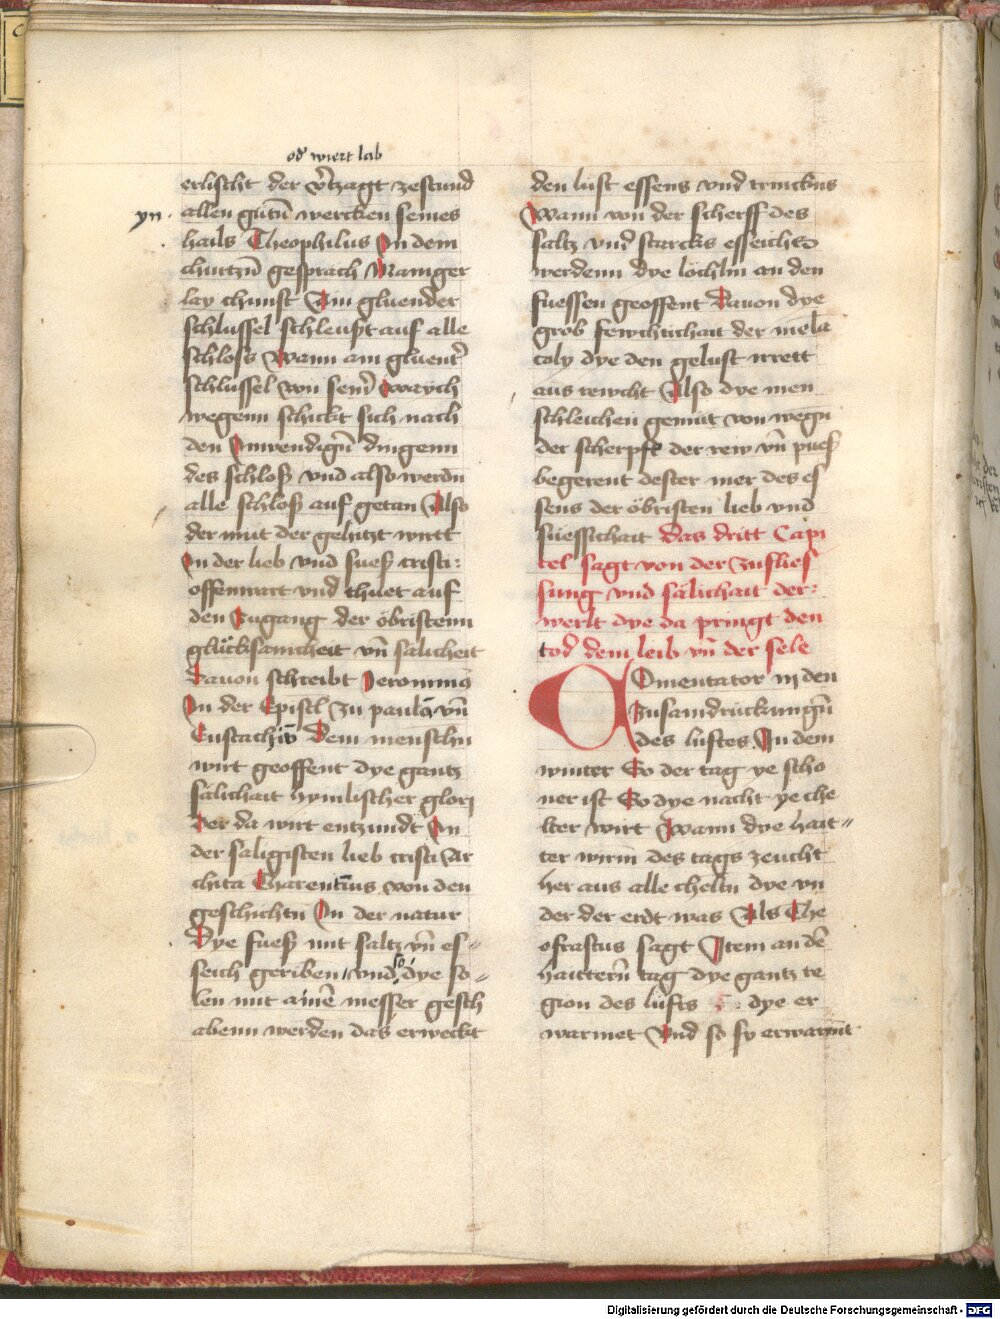 od' wiert lab
erlischt der v'tzagt zestund
yn. allen gutn̄ wercken seines
hails Theophilus In dem
churtzn̄ gesprach Maniger
lay chunst Ain gluender
schlussel schleust auf alle
schloss Wann ain gluent'
schlussel von sein'
wegenn schickt sich nach
den Inwendign̄ dingenn
des schloß vnd also werdn̄
alle schloß auf getan Also
der mit der gehitzt wirtt
In der lieb vnd sueß cristi:
offenwart vnd thuet auf
den Zugang der öbristenn
glücksamcheit vn̄ sälicheit
Dauon schreibt Jeronimus
In der Epistl zu paulā vn̄
Eustachiū Dem menschn
wirt geoffent dye gantz
sälichait hymlischer glori
Der da wirt entzundt In
der saligisten lieb cristi Ar
chita Tharentinus von den
geschichtn In der natur
Dye fueß mit saltz vn̄ es-
seich geriben vnd so dye so-
len mit ainē messer gesch
abenn werden das erweckt
den lust essens vnd trinckns
Wann von der scherff des
saltz vnd starcks esseichs
werdenn dye löchlin an den
fuessen geoffent Dauon dye
grob fewchtichait der mela
coly dye den gelust irrett
aus zewcht Also dye men
schleichen gemüt von wegn
der scherpff der rew vn̄ pueß
begerent dester mer des es
sens der öbristen lieb vnd
süessichait Das dritt Capi
tel sagt von der zuflies
sung vnd sälichait der:
werlt dye da pringt den
tod dem leib vn̄ der sele
Comentator in den
Zusamdrückungn̄
des luftes In dem
winter So der tag ye scho
ner ist So dye nacht ye che
lter wirt Wann dye hait-
ter wirm des tags zeucht
her aus alle cheltn dye vn
der der erdt was Als The
ofrastus sagt Item an dē
haittern̄ tag dye gantz re
gion des lufts dye er
warmet Vnd so sy erwarmt
Digitalisierung gefördert durch die Deutsche Forschungsgemeinschaft - DFG